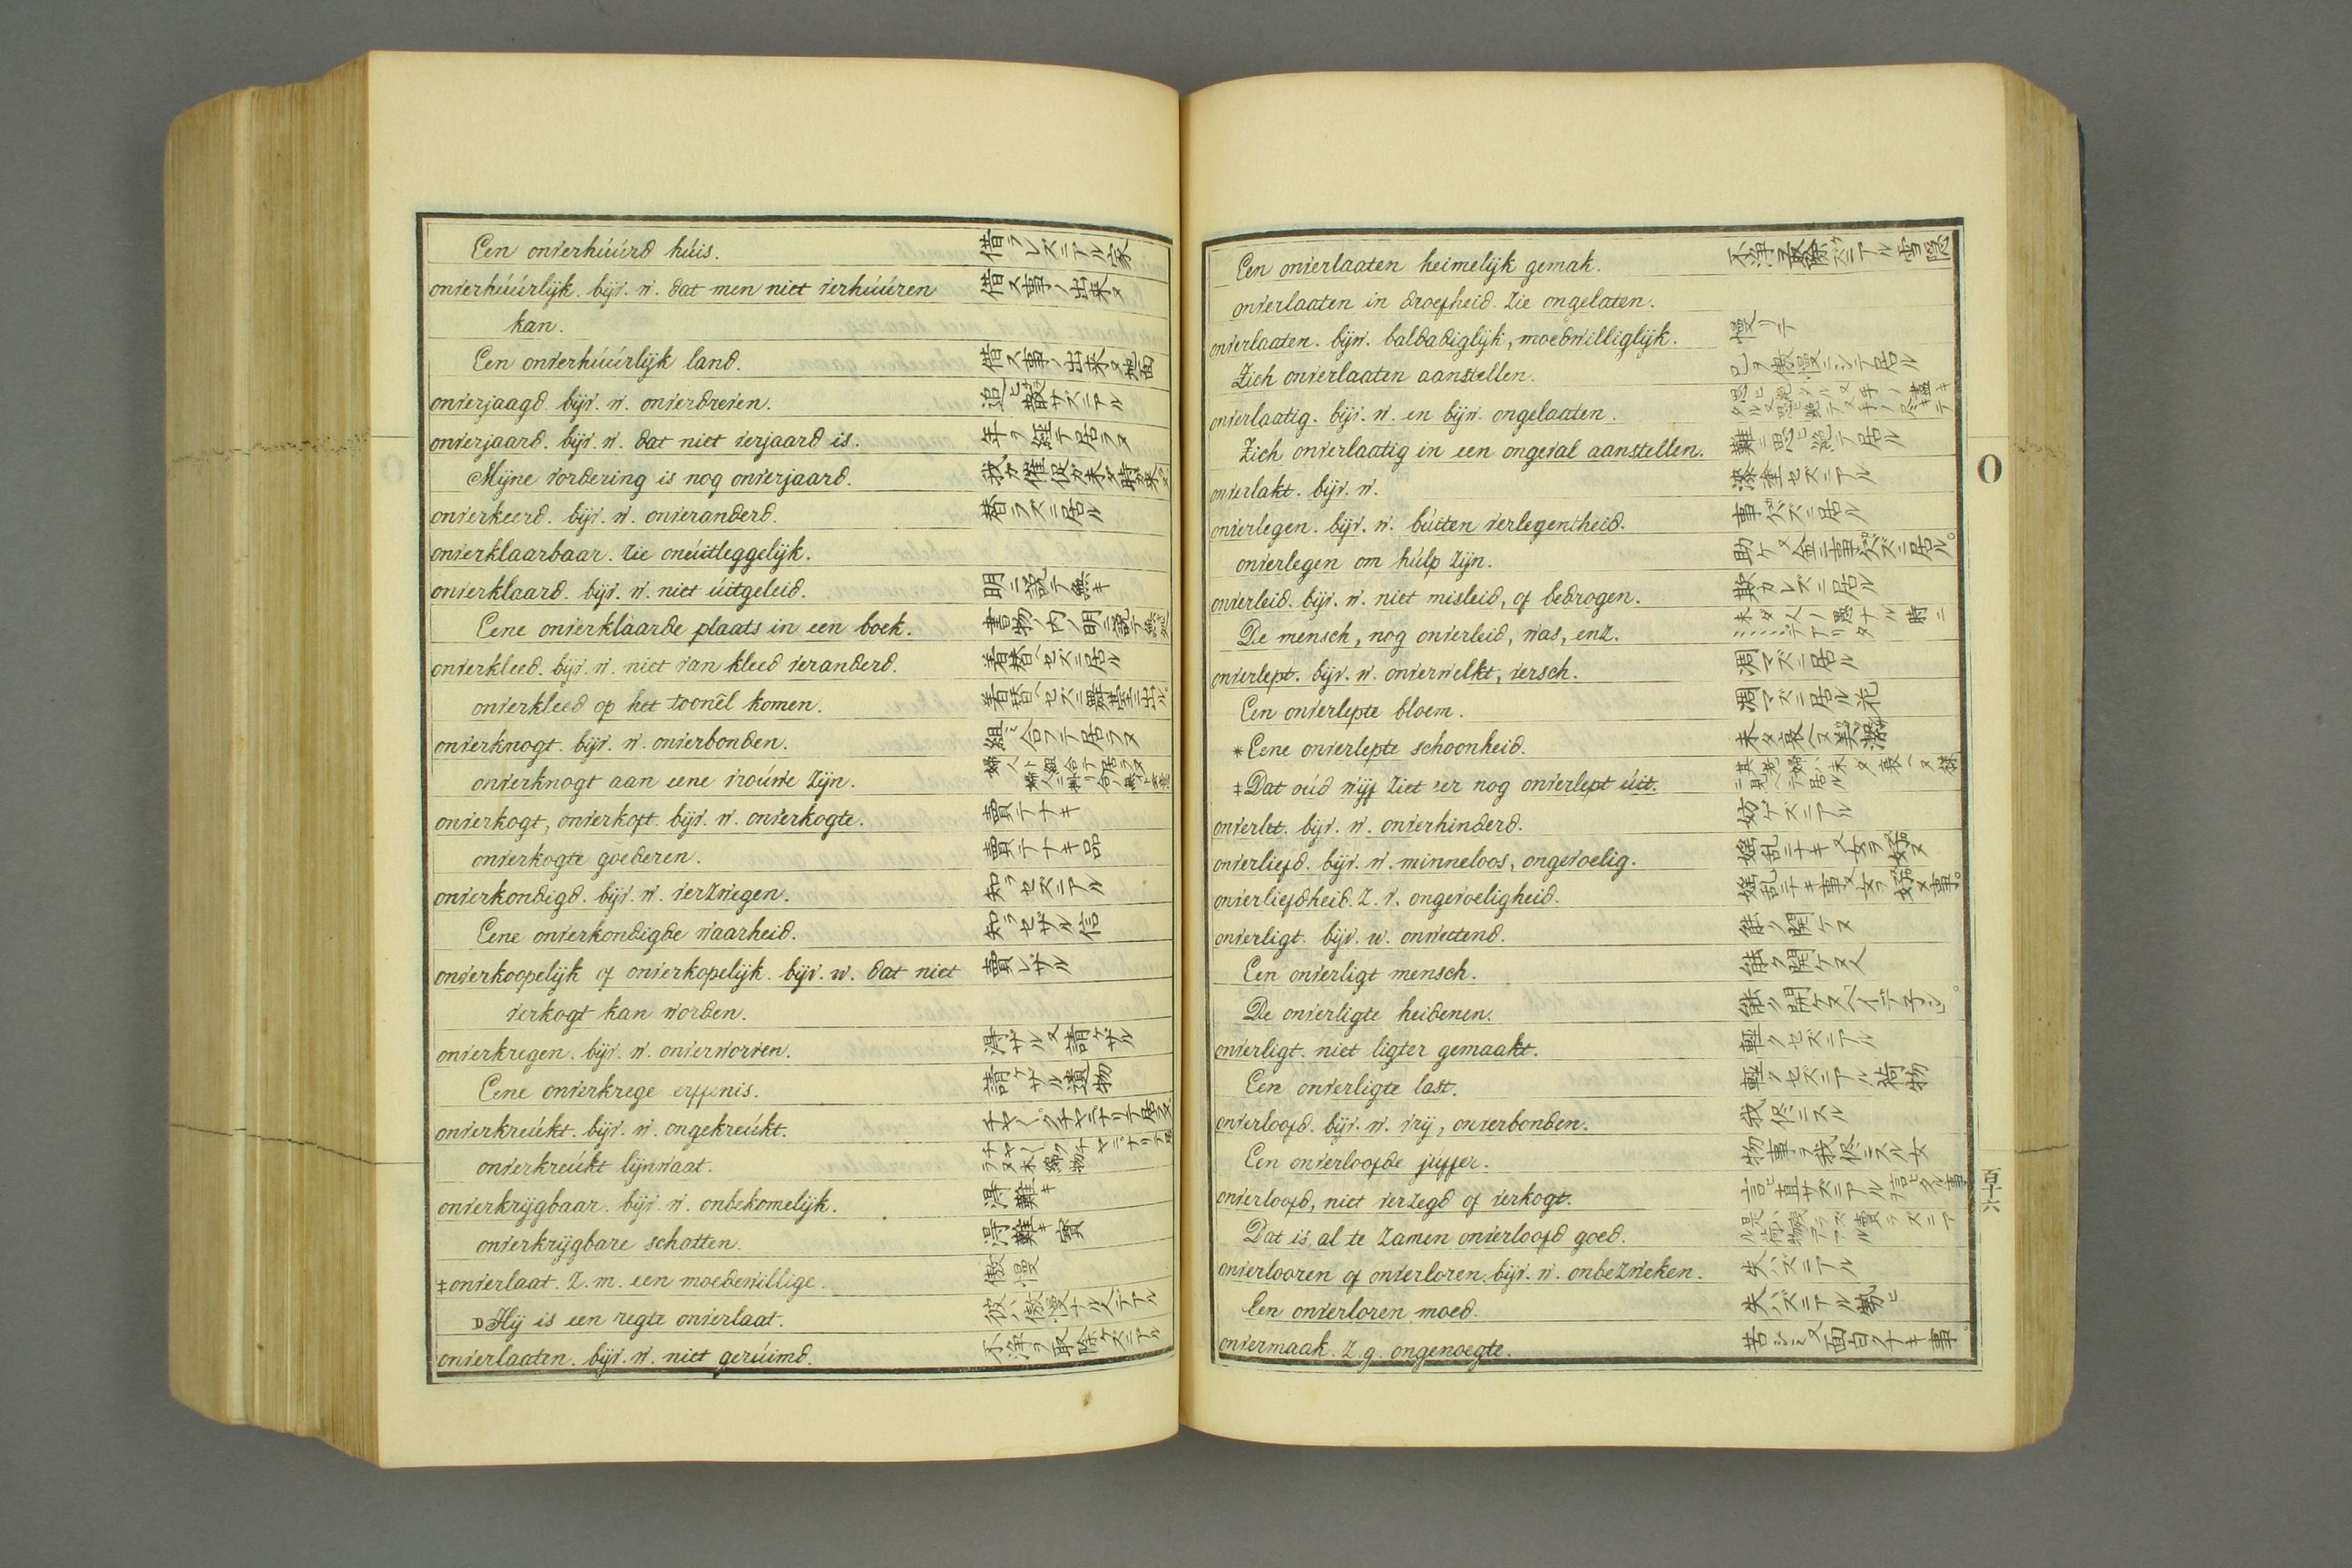 Een onverhúúrd húis. 借ラレズニアル家
onverhúúrlijk. bijv. w. dat men niet verhúúren 借ス事ノ出来ヌ
kan.
Een onverhúúrlijk land. 借ス事ノ出来ヌ地面
onverjaagd. bijv. w. onverdreven. 追ヒ散サズニアル
onverjaard. bijv. w. dat niet verjaard is. 年ヲ経テ居ラヌ
Mijne vordering is nog onverjaard.
onverkeerd. bijv. w. onveranderd. 替ラズニ居ル
onverklaarbaar. zie onúitleggelijk.
onverklaard. bijv. w. niet úitgeleid. 明ニ説テ無キ
Eene onverklaarde plaats in een boek. 書物ノ内ノ明ニ説テ無処
onverkleed. bijv. w. niet van kleed veranderd. 着替ヘセズニ居ル
onverkleed op het toonêl komen. 着替ヘセズニ舞台ニ出ル
onverknogt. bijv. w. onverbonden. 組ミ合フテ居ラヌ
onverknogt aan eene vroúwe zijn.
onverkogt, onverkoft. bijv. w. onverkogte. 賣テナキ
onverkogte goederen. 賣テナキ品
onverkondigd. bijv. w. verzwegen. 知ラセズニアル
Eene onverkondigde waarheid. 知ラセザル信
onverkoopelijk of onverkopelijk. bijv. w. dat niet 賣レザル
verkogt kan worden.
onverkregen. bijv. w. onverworven. 得ザル又請ケザル
Eene onverkrege erffenis. 請ケザル遺物
onverkreúkt. bijv. w. ongekreúkt.
onverkreúkt lijnwaat.
onverkrijgbaar. bijv. w. onbekomelijk. 得難キ
onverkrijgbare schatten. 得難キ寳
‡onverlaat. z. m. een moedewillige. 傲慢
D Hij is een regte onverlaat. 彼ハ傲慢ナル人デアル
onverlaaten. bijv. w. niet gerúimd. 不浄ヲ取除ケズニアル
Een onverlaaten heimelijk gemak.
onverlaaten in droefheid. zie ongelaten.
onverlaaten. bijw. baldadiglijk, moedwilliglijk. 慢リテ
Zich onverlaaten aanstellen. 己ヲ傲慢ニシテ居ル
onverlaatig. bijv. w. en bijw. ongelaaten.
Zich onverlaatig in een ongeval aanstellen. 難ニ思ヒ絶テ居ル
onverlakt. bijv. w. 漆塗セズニアル
onverlegen. bijv. w. búiten verlegentheid. 事欠ズニ居ル
onverlegen om húlp zijn.
onverleid. bijv. w. niet misleid, of bedrogen. 欺カレズニ居ル
De mensch, nog onverleid, was, enz. 未タ人ノ愚ナル時ニ……デアリタ
onverlept. bijv. w. onverwelkt, versch. 凋マズニ居ル
Een onverlepte bloem. 凋マズニ居ル花
*Eene onverlepte schoonheid.
‡Dat oúd wijf ziet 'er nog onverlept úit.
onverlet. bijv. w. onverhinderd. 妨ケズニアル
onverliefd. bijv. w. minneloos, ongevoelig.
onverliefdheid. z. v. ongevoeligheid.
onverligt. bijv. w. onwettend. 能ク開ケヌ
Een onverligt mensch. 能ク開ケヌ人
De onverligte heidenen.
onverligt. niet ligter gemaakt. 軽クセズニアル
Een onverligte last. 軽クセズニアル荷物
onverloofd. bijv. w. vrij, onverbonden. 我侭ニスル
Een onverloofde juffer. 物事ヲ我侭ニスル女
onverloofd, niet verzegd of verkogt.
Dat is al te zamen onverloofd goed.
onverlooren of onverloren. bijv. w. onbezweken. 失ハズニアル
Een onverloren moed. 失ハズニアル勢ヒ
onvermaak. z. g. ongenoegte.
O
百十六